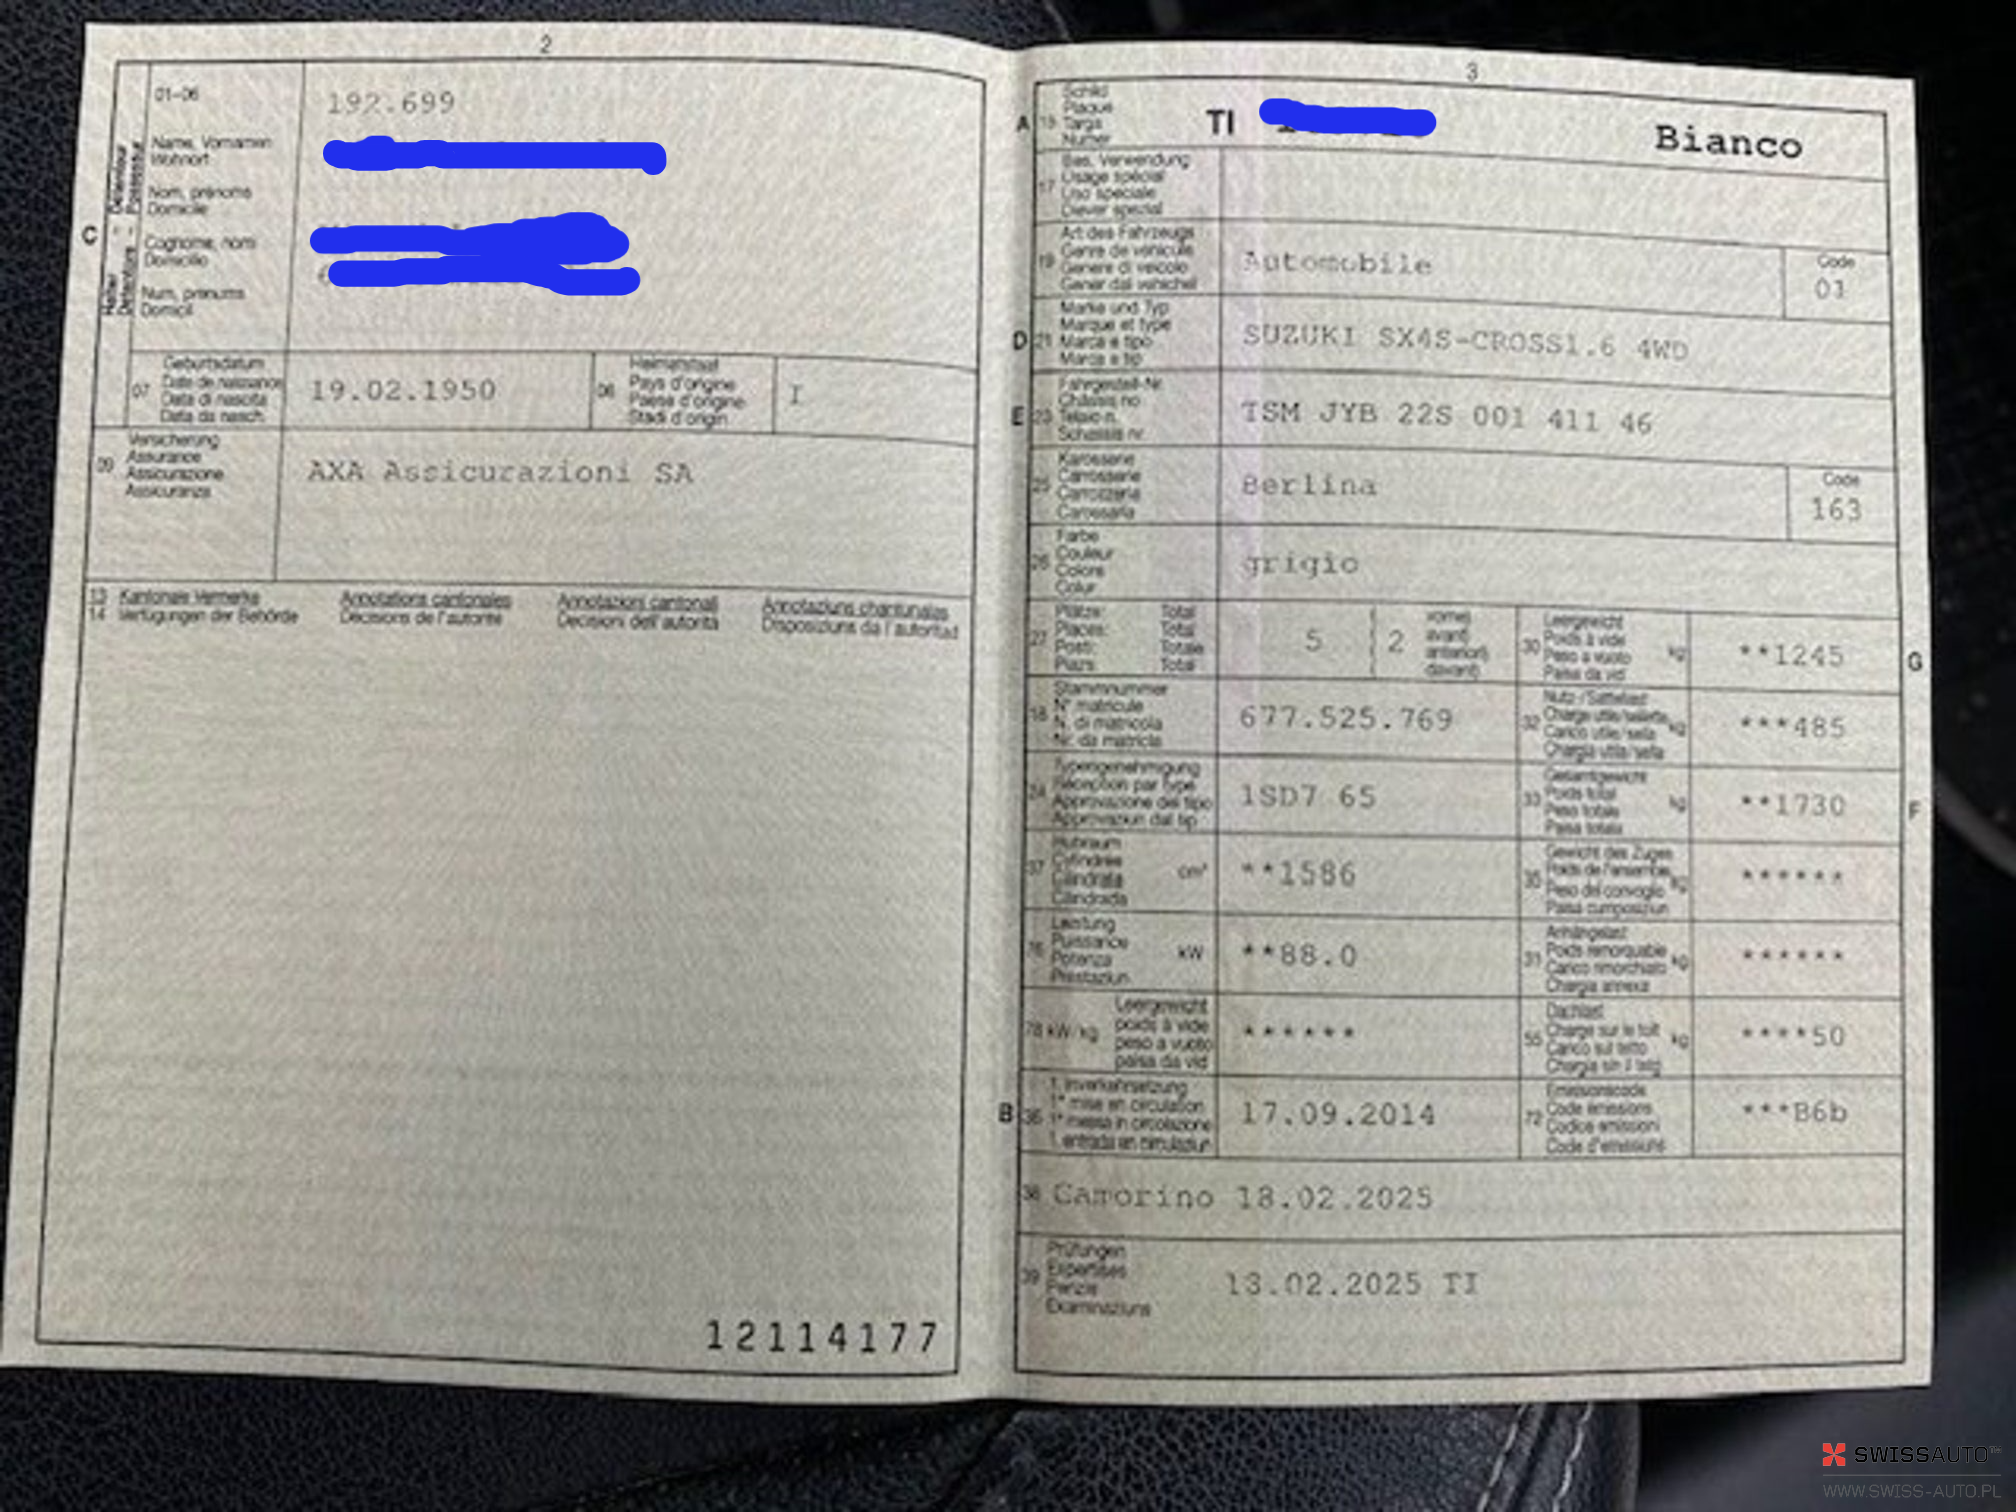 2
01-06
192.699
Name, Vornamen
Wohnort
Nom, prénoms
Domicile
Cognome, nomi
Domicilio
Num, prenums
Domicil
C
07
Geburtsdatum
Date de naissance
Data di nascita
Data da nasch.
19.02.1950
06
Heimatstaat
Pays d'origine
Paese d'origine
Stadi d'origin
I
09
Versicherung
Assurance
Assicurazione
Assicuranza
AXA Assicurazioni SA
13 Kantonale Vermerke Annotations cantonales Annotazioni cantonali Annotaziuns chantunalas
14 Verfügungen der Behörde Décisions de l'autorité Decisioni dell'autorità Disposiziuns da l'autoritad
12114177
3
A
Schild
Plaque
Targa
Numer
TI
Bianco
17
Bes. Verwendung
Usage spécial
Uso speciale
Diever spezial
19
Art des Fahrzeugs
Genre de véhicule
Genere di veicolo
Gener dal vehichel
Automobile
Code
01
D 21
Marke und Typ
Marque et type
Marca e tipo
Marca e tip
SUZUKI SX4S-CROSS1.6 4WD
E 23
Fahrgestell-Nr.
Châssis no
Telaio n.
Schassis nr.
TSM JYB 22S 001 411 46
25
Karosserie
Carrosserie
Carrozzeria
Carossaria
Berlina
Code
163
26
Farbe
Couleur
Colore
Colur
grigio
27
Plätze: Total
Places: Total
Posti: Totale
Plazs Total
5
2
vorne)
avant)
anteriori)
davant)
30
Leergewicht
Poids à vide
Peso a vuoto
Paisa da vid
kg
**1245
G
18
Stammnummer
N° matricule
N. di matricola
Nr. da matricla
677.525.769
32
Nutz-/Sattellast
Charge utile/sellette
Carico utile/sella
Chargia utila/sella
kg
***485
24
Typengenehmigung
Réception par type
Approvazione del tipo
Approvaziun dal tip
1SD7 65
33
Gesamtgewicht
Poids total
Peso totale
Paisa totala
kg
**1730
F
37
Hubraum
Cylindrée
Cilindrata
Cilindrada
cm³
**1586
35
Gewicht des Zuges
Poids de l'ensemble
Peso del convoglio
Paisa cumposiziun
kg
******
76
Leistung
Puissance
Potenza
Prestaziun
kW
**88.0
31
Anhängelast
Poids remorquable
Carico rimorchiato
Chargia annexa
kg
******
78 kW/kg
Leergewicht
poids à vide
peso a vuoto
paisa da vid
******
55
Dachlast
Charge sur le toit
Carico sul tetto
Chargia sin il tetg
kg
****50
B 36
1. Inverkehrsetzung
1re mise en circulation
1a messa in circolazione
1. entrada en circulaziun
17.09.2014
72
Emissionscode
Code émissions
Codice emissioni
Code d'emissiuns
***B6b
38 Camorino 18.02.2025
39
Prüfungen
Expertises
Perizie
Examinaziuns
13.02.2025 TI
SWISSAUTO
WWW.SWISS-AUTO.PL